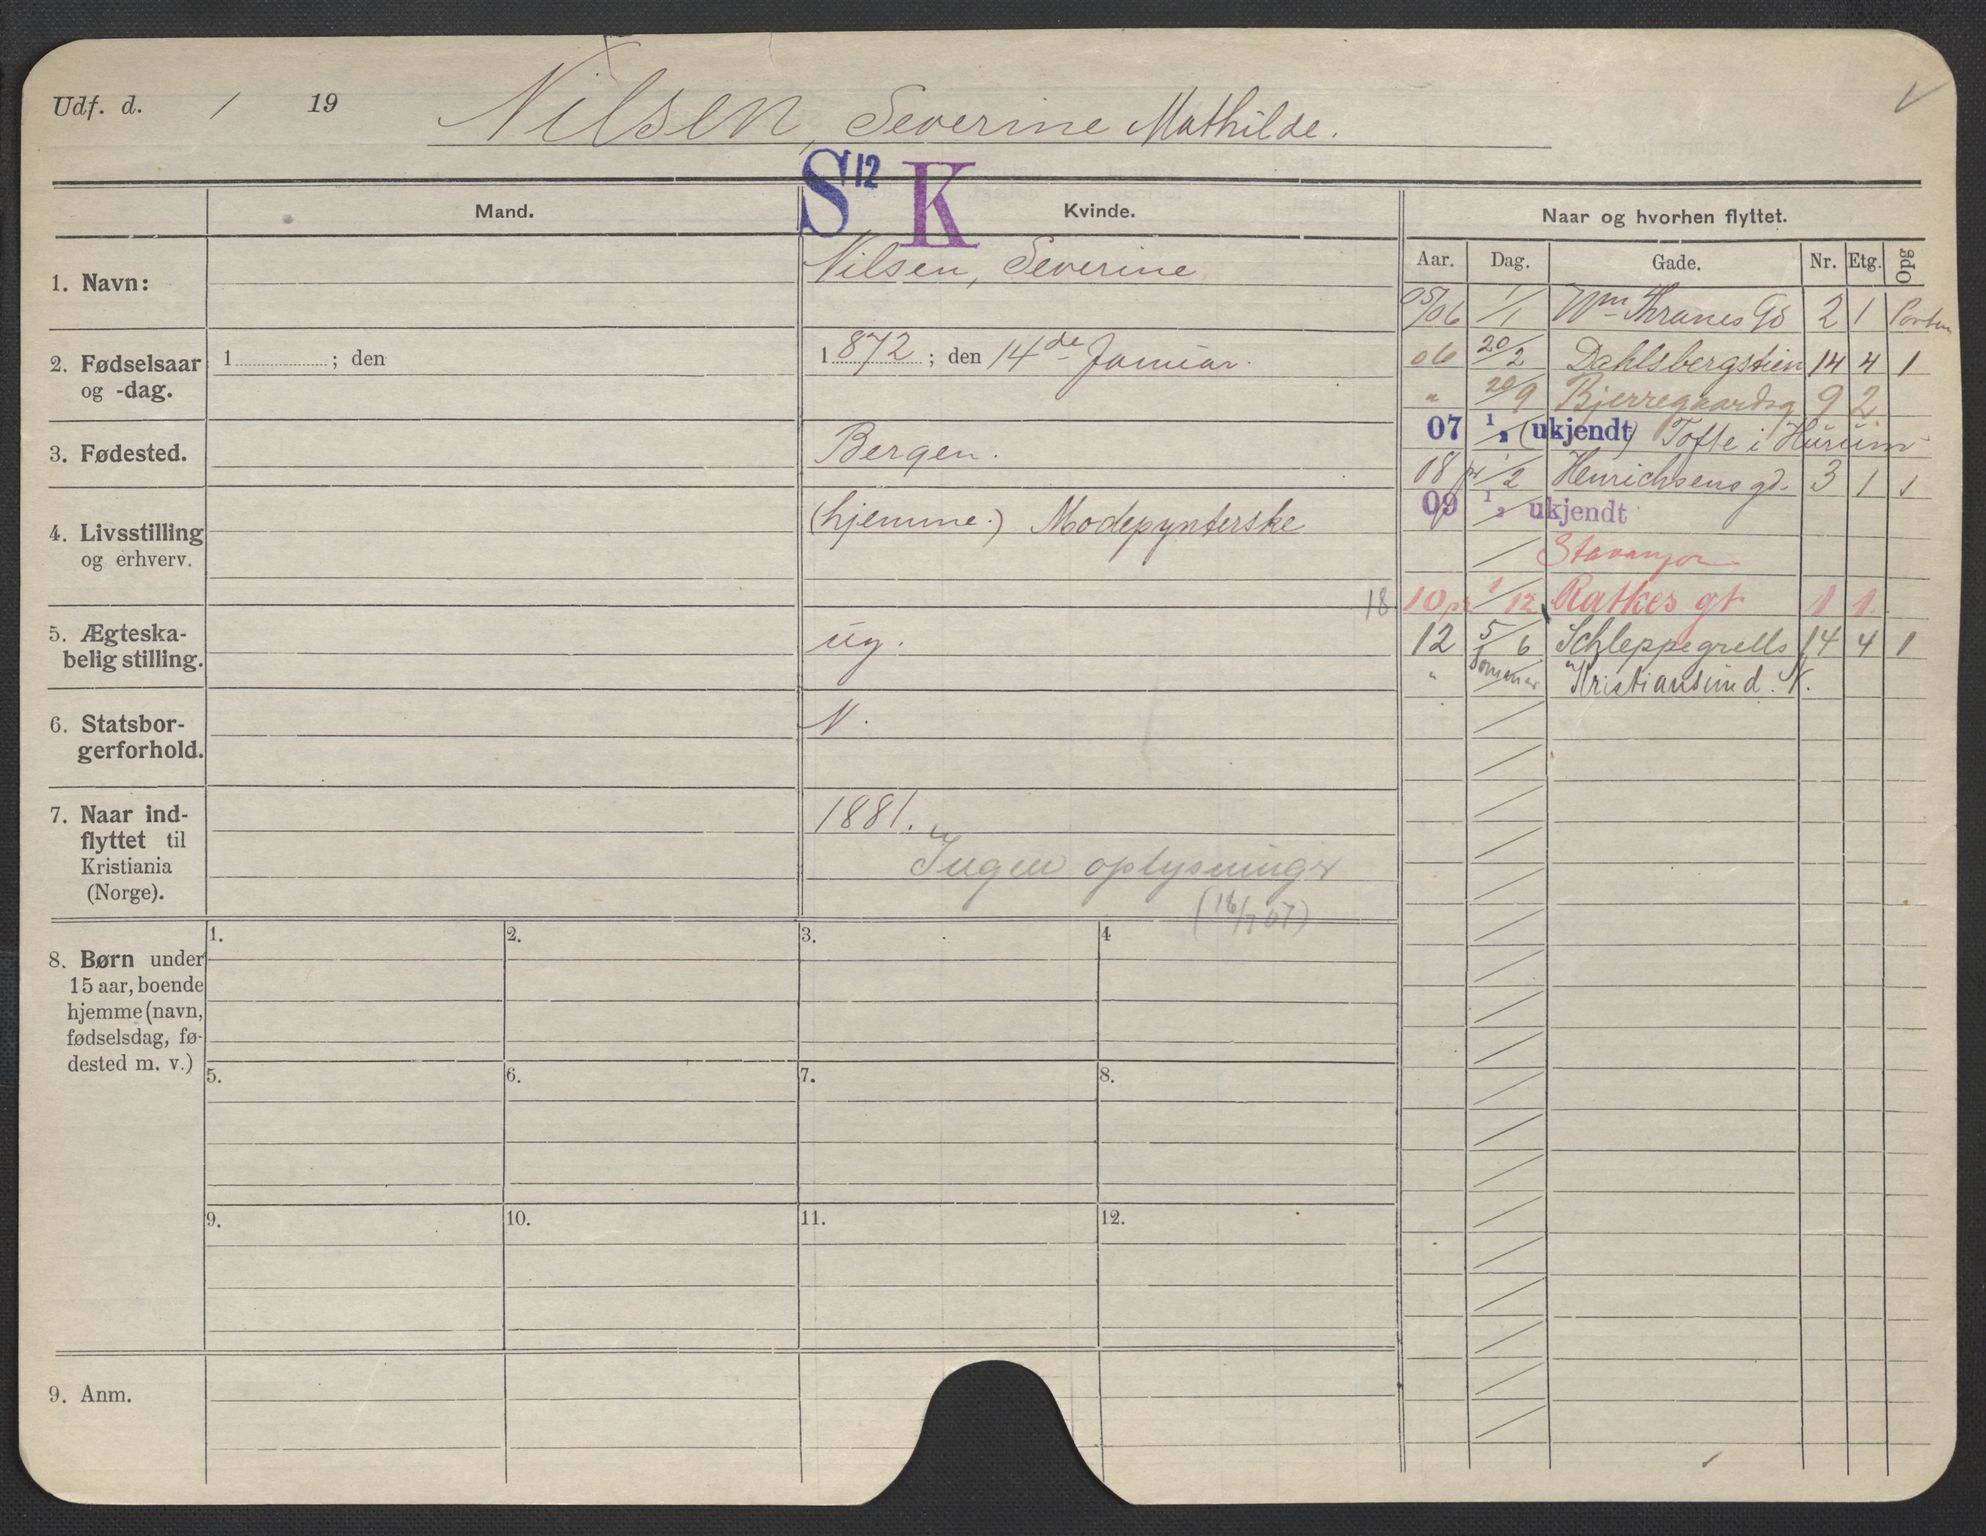 Udf. d. / 19 Nilsen, Severine Mathilde.
S 12 K
Mand. Kvinde. Naar og hvorhen flyttet.
Aar. Dag. Gade. Nr. Etg. Opg
1. Navn: Nilsen, Severine
2. Fødselsaar og -dag. 1 ; den 1872 ; den 14de Januar.
3. Fødested. Bergen.
4. Livsstilling og erhverv. (hjemme.) Modepynterske
5. Ægteskabelig stilling. ug.
6. Statsborgerforhold. N.
7. Naar indflyttet til Kristiania (Norge). 1881.
Ingen oplysninger
(18/7 07)
05/06 1/1 Wm Thranes Gd 2 1 Porten
06 20/2 Dahlsbergstien 14 4 1
" 20/9 Bjerregaardsg 9 2
07 1/2 (ukjendt) Tofte i Hurum
08 pr 1/2 Henrichsens gd. 3 1 1
09 1/2 ukjendt
Stavanger
18 10 pr 1/12 Ratkes gt 1 1
12 5/6 Schleppegrells 14 4 1
" Sommer Kristiansund. N.
8. Børn under
15 aar, boende
hjemme (navn,
fødselsdag, fø-
dested m. v.)
1. 2. 3. 4
5. 6. 7. 8.
9. 10. 11. 12.
9. Anm.